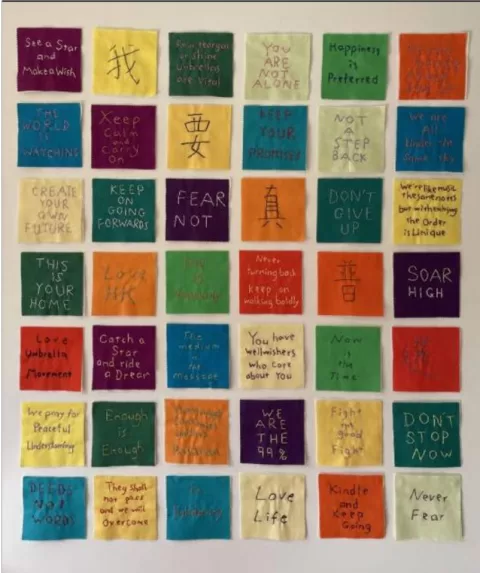 See a Star
and
Make a Wish
我
For tear gas
or shine
Umbrellas
are vital
You
ARE
NOT
ALONE
Happiness
is
Preferred
THE
WORLD
IS
WATCHING
Keep
Calm
and
Carry
On
要
KEEP
YOUR
PROMISES
NOT
A
STEP
BACK
We are
All
Under
Same Sky
CREATE
YOUR
OWN
FUTURE
KEEP
ON
GOING
FORWARDS
FEAR
NOT
真
DON'T
GIVE
UP
We're like music
The same notes
but with
the Order
is Unique
THIS
IS
YOUR
HOME
Love
HK
Never
turning back
keep on
walking boldly
普
SOAR
HIGH
Love
Umbrella
Movement
Catch a
Star
and ride
a Dream
The
medium
is
the
message
You have
wellwishers
who care
about You
Now
is the
Time
We pray for
Peaceful
Understanding
Enough
is
Enough
WE
ARE
THE
99%
Fight
the
good
Fight
DON'T
STOP
NOW
DEEDS
NOT
WORDS
They shall
not pass
and we will
Overcome
Love
Life
Kindle
and
Keep
Going
Never
Fear